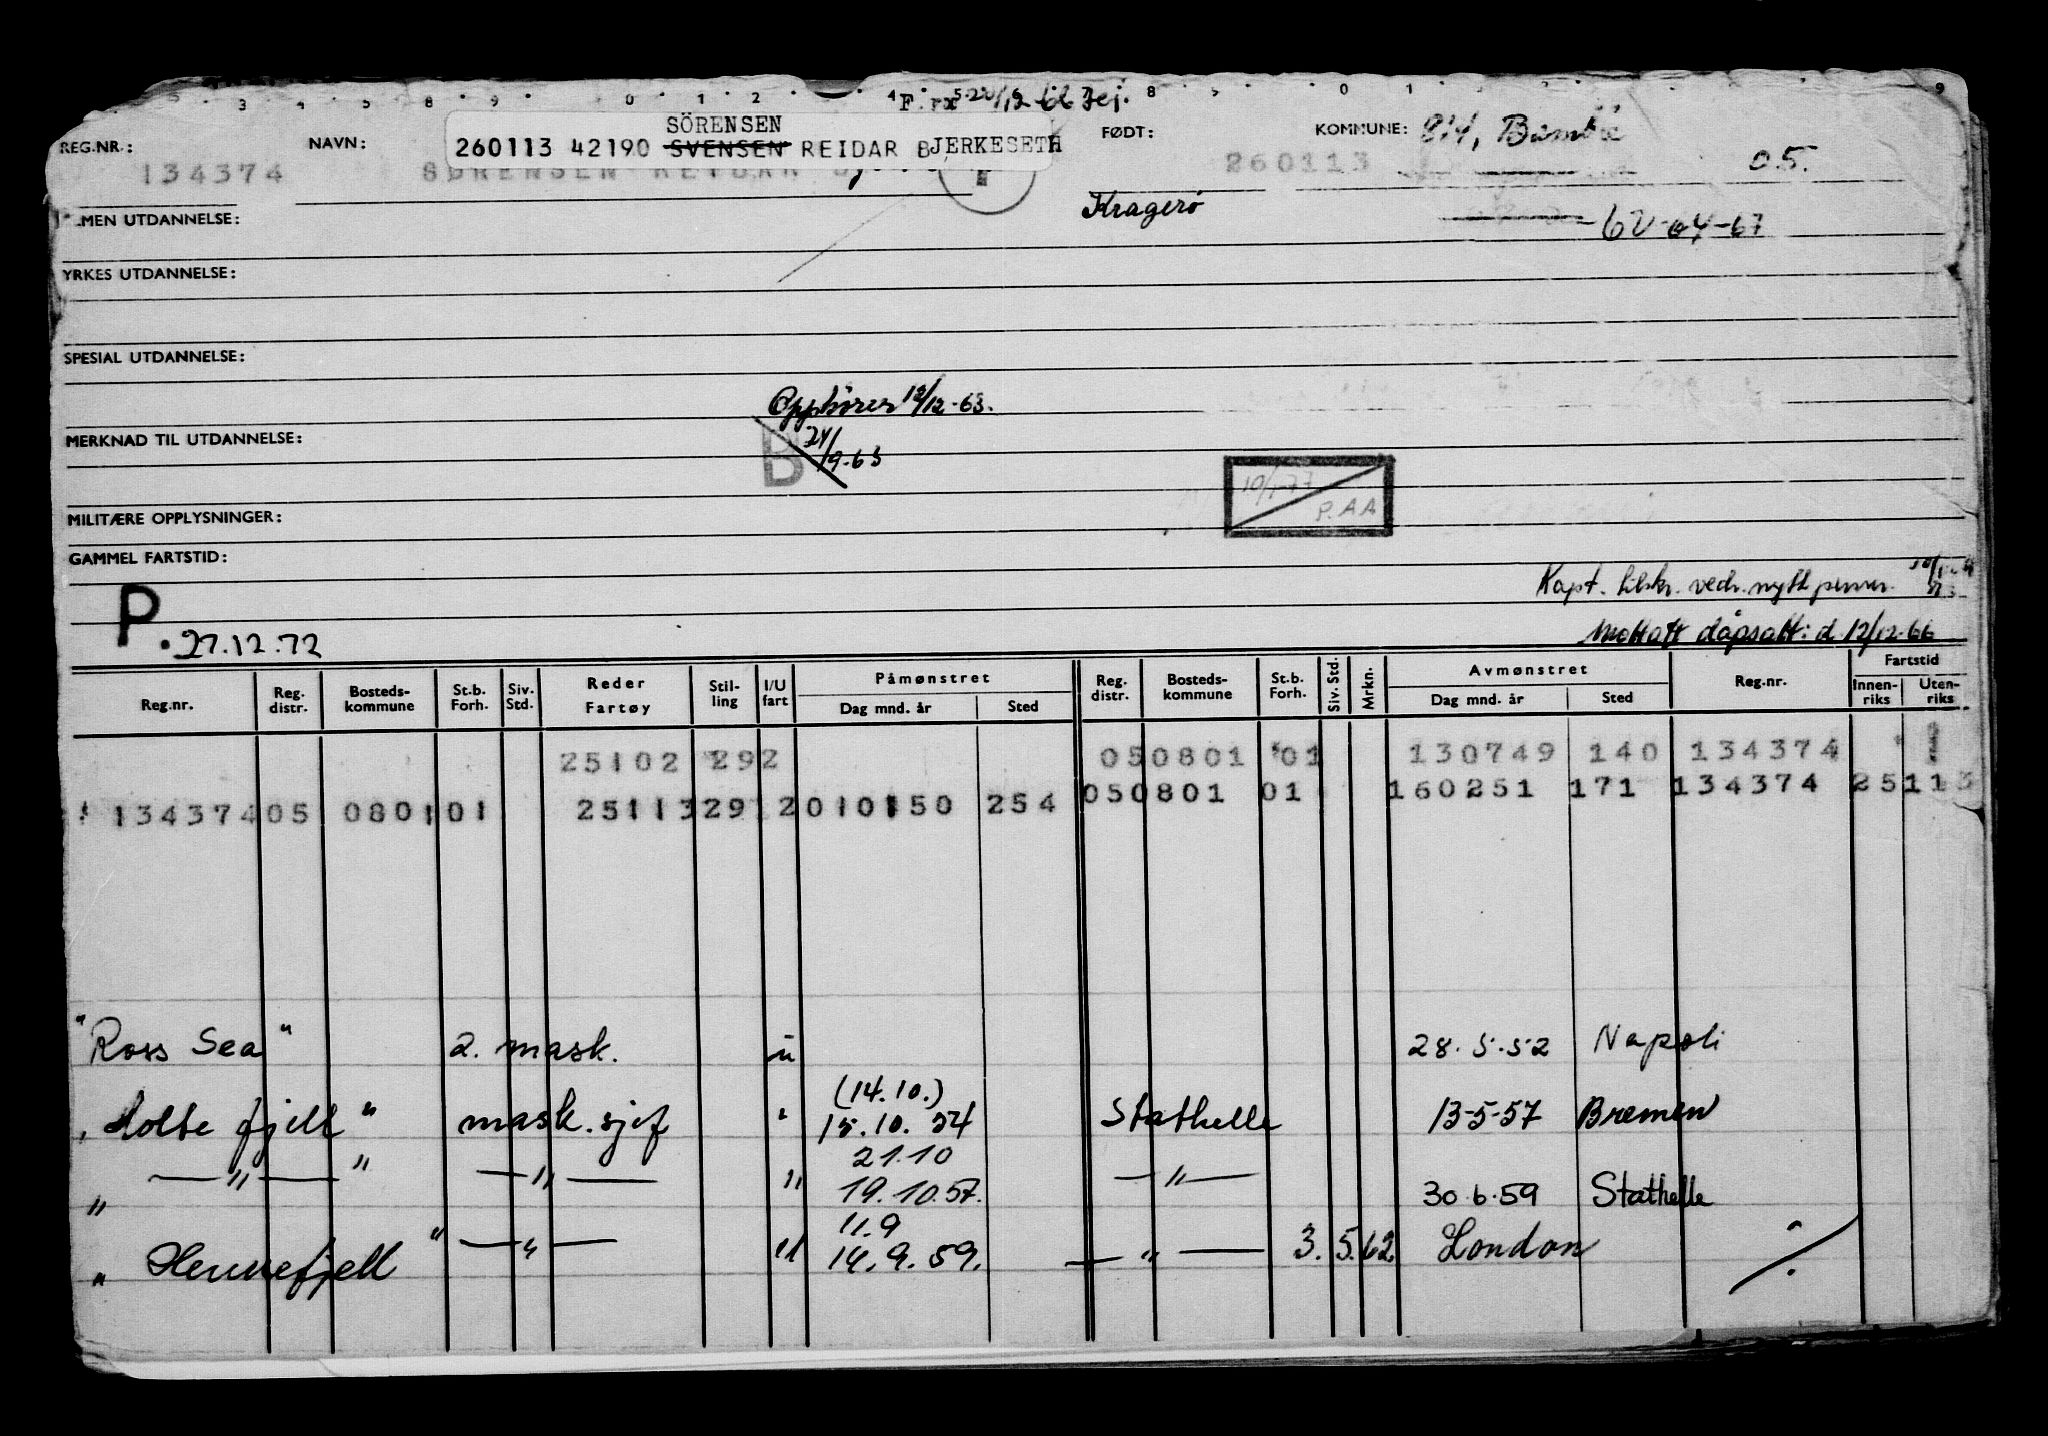 3 4 5 8 9 0 1 2 4 8 0 1 9
REG.NR.: NAVN: SÖRENSEN FØDT: KOMMUNE: 814, Bamble
260113 42190 SVENSEN REIDAR BJERKESETH
134374 SØRENSEN REIDAR 260113 05.
Kragerø
MEN UTDANNELSE: 62-04-67
YRKES UTDANNELSE:
SPESIAL UTDANNELSE:
Opphører 12/12-63.
MERKNAD TIL UTDANNELSE: 24/9-63
B
10/1-77 P.AA
MILITÆRE OPPLYSNINGER:
GAMMEL FARTSTID:
Kapt. tilskr. vedr. nytt
P. 27.12.72 Mottatt dåpsatt: d. 12/12-66
Reg.nr. Reg. distr. Bosteds-kommune St.b. Forh. Siv. Std. Reder Fartøy Stil-ling I/U fart Påmønstret Dag mnd. år Sted Reg. distr. Bosteds-kommune St.b. Forh. Siv. Std. Mrkn. Avmønstret Dag mnd. år Sted Reg.nr. Fartstid Innen-riks Uten-riks
25102 292 050801 01 130749 140 134374
134374 05 0801 01 25113 291 2 010150 254 050801 01 160251 171 134374 25113
"Ross Sea" 2. mask. u 28.5.52 Napoli
(14.10.)
"Holtefjell" mask.sjef " 15.10.54 Stathelle 13-5-57 Bremen
21.10
" —"— " —"— " 19.10.57. —"— 30.6.59 Stathelle
11.9
"Hennefjell" —"— " 14.9.59. —"— 3.5.62. London